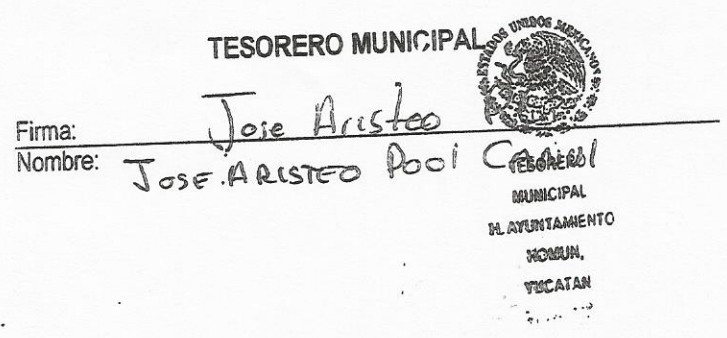 TESORERO MUNICIPAL
ESTADOS UNIDOS MEXICANOS
Firma: Jose Aristeo
Nombre: JOSE ARISTEO Pool
TESORERO
MUNICIPAL
H. AYUNTAMIENTO
HOMUN,
YUCATAN